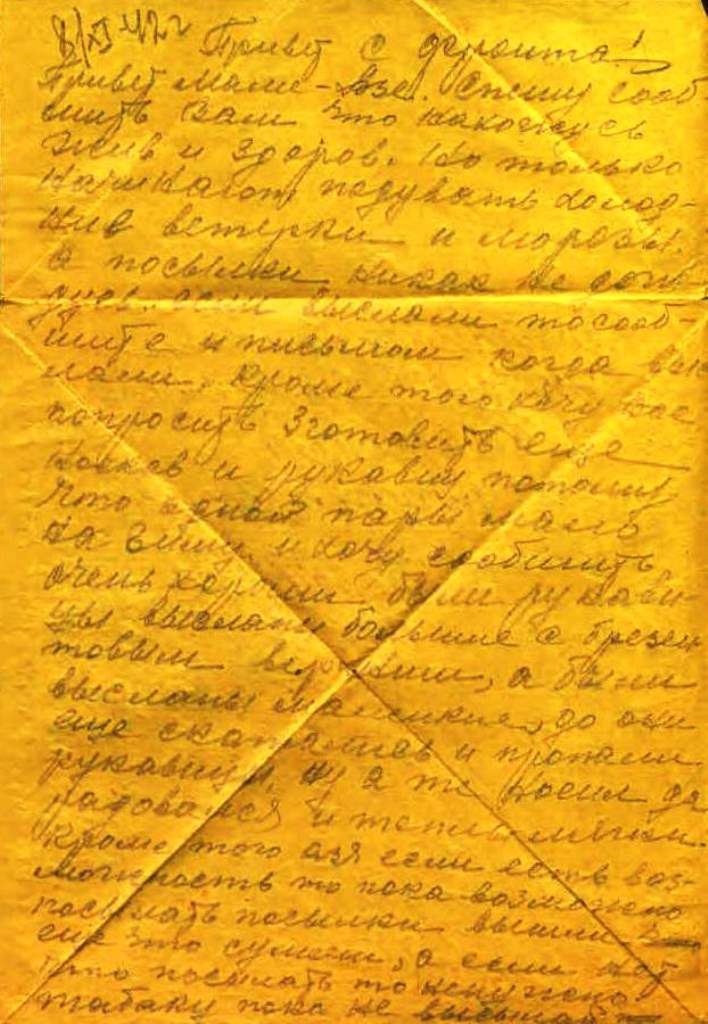 8/XI 42 г
Привет с фронта!
Привет маме - Азе. Спешу сооб
щить Вам что нахожусь
жив и здоров. Но только
начинают подувать холод-
ние ветерки и морозы.
а посылки никак не
если выслали то сооб-
щите и письмом когда выс
лали. Кроме того хочу вас
попросить зготовить еще
носков и рукавиц потому
что одной пары мало
на зиму. и хочу сообщить
очень хорошии были рукави-
цы высланы большие с брезен
товым верхним, а были
высланы маленкие, до они
еще скатались и пропали
рукавицы, ну а те носил да
радовался и тепли мягки.
Кроме того Азя если есть воз-
можность то пока возможно
посылать посылки вышли
еще что сумееш, а если
что посылать то ненужно
табаку пока не высылай